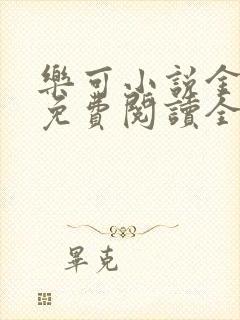 樂可小說全
免費閱讀全
畢克